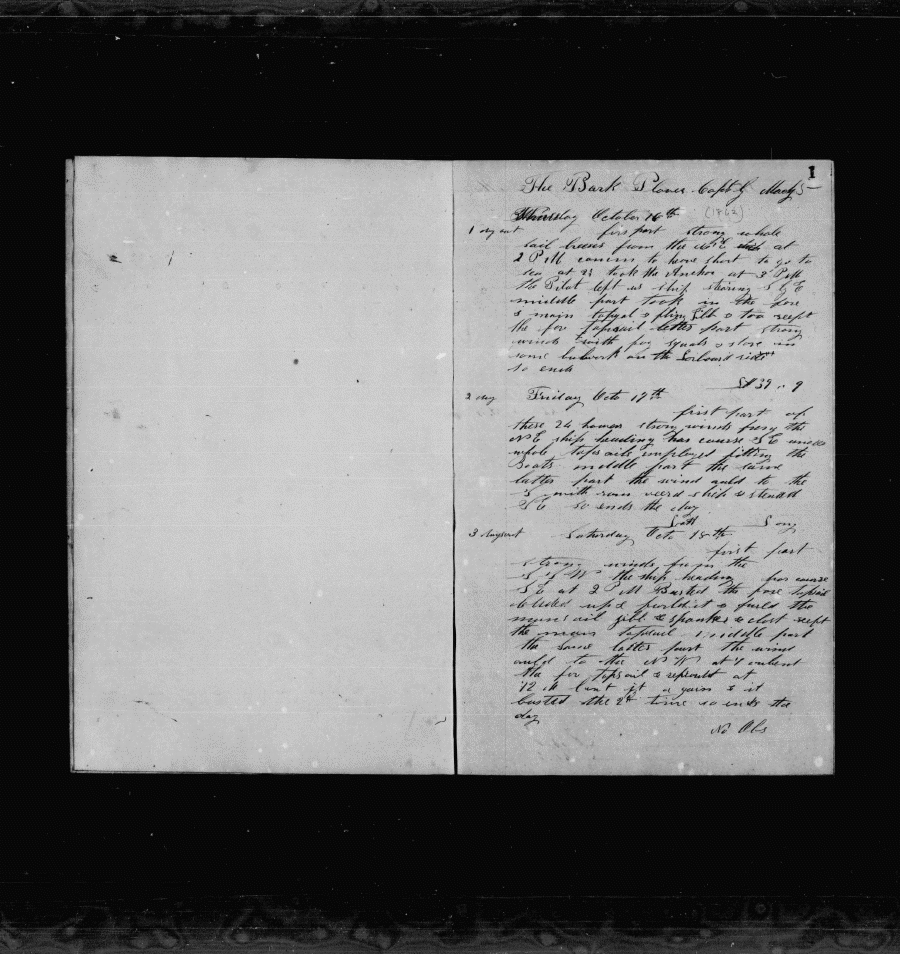 1
The Bark Plover Capt G Macy
Thursday October 16th (1862)
1 day out first part strong whole
sail breeses from the NE at
2 PM comens to hove short to go to
sea at 2½ took the Anchor at 3 PM
the Pilot left us ship stering S by E
middle part took in the fore
& main topgal & fliing gib & tow reept
the fore topsail latter part strong
winds with foy squals & stove in
some bulwork on the Larboard side
so ends
Lat 39 " 9
2 day Friday Octo 17th
first part of
these 24 houers strong winds from the
NE ship heading har course SE under
whole topsails employed fitting the
Boats middle part the same
latter part the wind auld to the
S with rain veerd ship & steaded
SE so ends the day
Latt Long
3 days out Saturday Octo 18th
first part
strong winds from the
S by W the ship heading har course
SE at 2 PM Busted the fore topsail
clueded up & furld it & furld the
mainsail gibb & spanker & clost reept
the main topsail middle part
the same latter part the wind
auld to the NW at 4 onbent
the for topsail & repeard at
12 M bent it again & it
busted the 2d time so ends the
day
No Obs